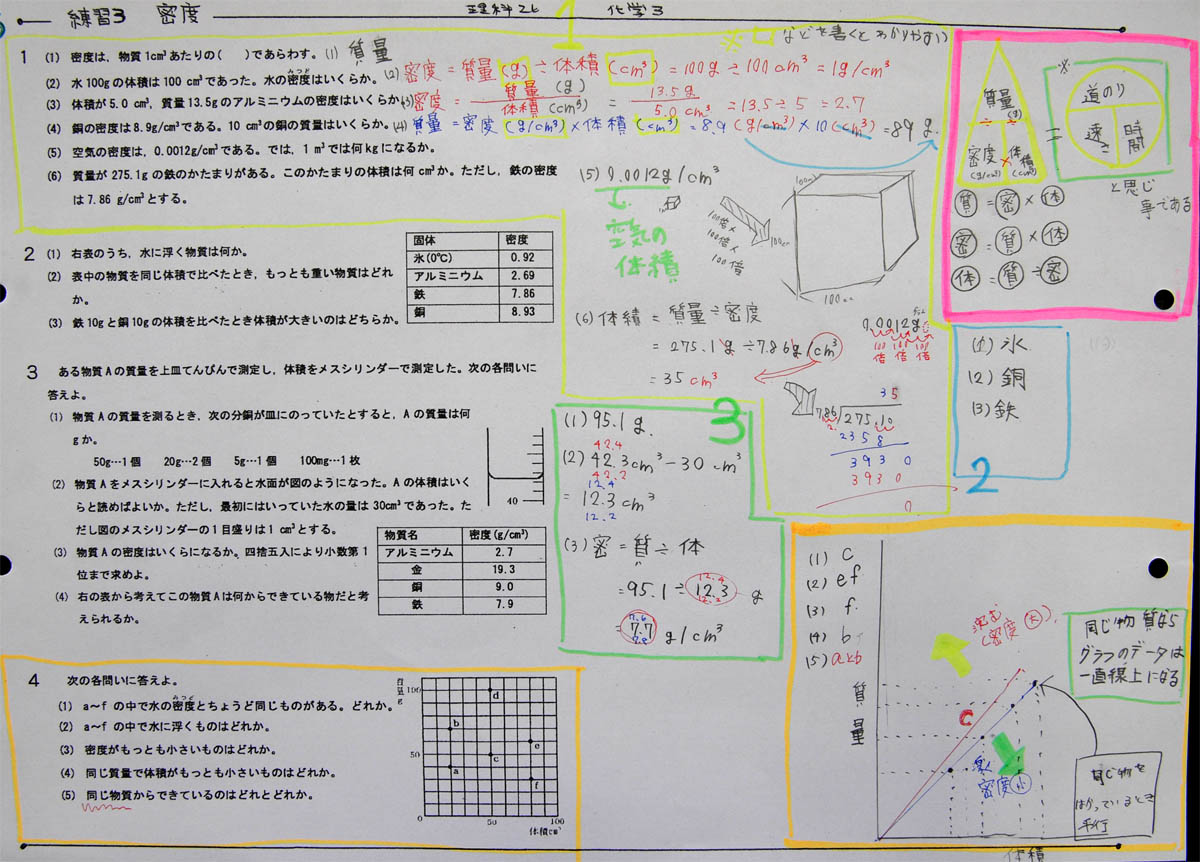 練習3 密度
理科2G 化学3
※ などを書くとわかりやすい
1 (1) 密度は、物質1cm³あたりの( )であらわす。
(1) 質量
(2) 水100gの体積は100 cm³であった。水の密度はいくらか。
みつど
(2) 密度 = 質量(g) ÷ 体積(cm³) = 100g ÷ 100cm³ = 1g/cm³
(3) 体積が5.0 cm³, 質量13.5gのアルミニウムの密度はいくらか。
(3) 密度 = 質量(g)/体積(cm³) = 13.5g/5.0cm³ = 13.5÷5 = 2.7
(4) 銅の密度は8.9g/cm³である。10 cm³の銅の質量はいくらか。
(4) 質量 = 密度(g/cm³) × 体積(cm³) = 8.9(g/cm³) × 10(cm³) = 89g.
(5) 空気の密度は, 0.0012g/cm³である。では, 1 m³では何kgになるか。
(6) 質量が275.1gの鉄のかたまりがある。このかたまりの体積は何cm³か。ただし, 鉄の密度
は7.86 g/cm³とする。
(5) 0.0012g/cm³
空気の
体積
100倍×
100倍×
100倍
100cm
100cm
100cm
(6) 体積 = 質量 ÷ 密度
= 275.1g ÷ 7.86g/cm³
= 35 cm³
0.0012g
100倍 100倍 100倍
35
7.86 275.10
2358
3930
3930
0
質量
(g)
÷ ÷
密度 × 体積
(g/cm³) (cm³)
=
※
道のり
速さ 時間
と同じ
事である
質 = 密 × 体
密 = 質 ÷ 体
体 = 質 ÷ 密
2 (1) 右表のうち, 水に浮く物質は何か。
(2) 表中の物質を同じ体積で比べたとき, もっとも重い物質はどれ
か。
(3) 鉄10gと銅10gの体積を比べたとき体積が大きいのはどちらか。
固体 密度
氷(0℃) 0.92
アルミニウム 2.69
鉄 7.86
銅 8.93
(1) 氷
(2) 銅
(3) 鉄
2
3 ある物質Aの質量を上皿てんびんで測定し, 体積をメスシリンダーで測定した。次の各問いに
答えよ。
(1) 物質Aの質量を測るとき, 次の分銅が皿にのっていたとすると, Aの質量は何
gか。
50g…1個 20g…2個 5g…1個 100mg…1枚
(2) 物質Aをメスシリンダーに入れると水面が図のようになった。Aの体積はいく
らと読めばよいか。ただし, 最初にはいっていた水の量は30cm³であった。た
だし図のメスシリンダーの1目盛りは1 cm³とする。
(3) 物質Aの密度はいくらになるか。四捨五入により小数第1
位まで求めよ。
(4) 右の表から考えてこの物質Aは何からできている物だと考
えられるか。
40
物質名 密度(g/cm³)
アルミニウム 2.7
金 19.3
銅 9.0
鉄 7.9
3
(1) 95.1g.
42.4
(2) 42.3cm³ - 30cm³
42.2
12.4
= 12.3cm³
12.2
(3) 密 = 質 ÷ 体
12.4
= 95.1 ÷ 12.3 g
12.2
7.6
= 7.7 g/cm³
7.8
4 次の各問いに答えよ。
(1) a～f の中で水の密度とちょうど同じものがある。どれか。
みつど
(2) a～f の中で水に浮くものはどれか。
(3) 密度がもっとも小さいものはどれか。
(4) 同じ質量で体積がもっとも小さいものはどれか。
(5) 同じ物質からできているのはどれとどれか。
質量g
100
50
0
50
100
体積cm³
a
b
c
d
e
f
(1) c
(2) ef
(3) f.
(4) b
(5) aとb
質量
体積
C
沈む
(密度 大)
浮く
密度 小
同じ物質なら
グラフのデータは
一直線上になる
同じ物を
はかっているとき
平行